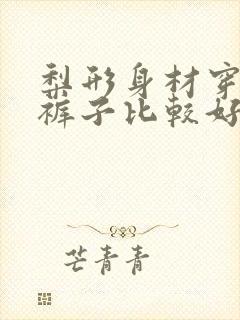 梨形身材穿
裤子比较好
芒青青